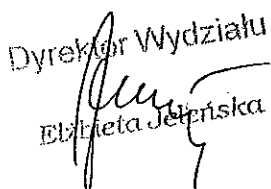 Dyrektor Wydziału
Elżbieta Jeleńska